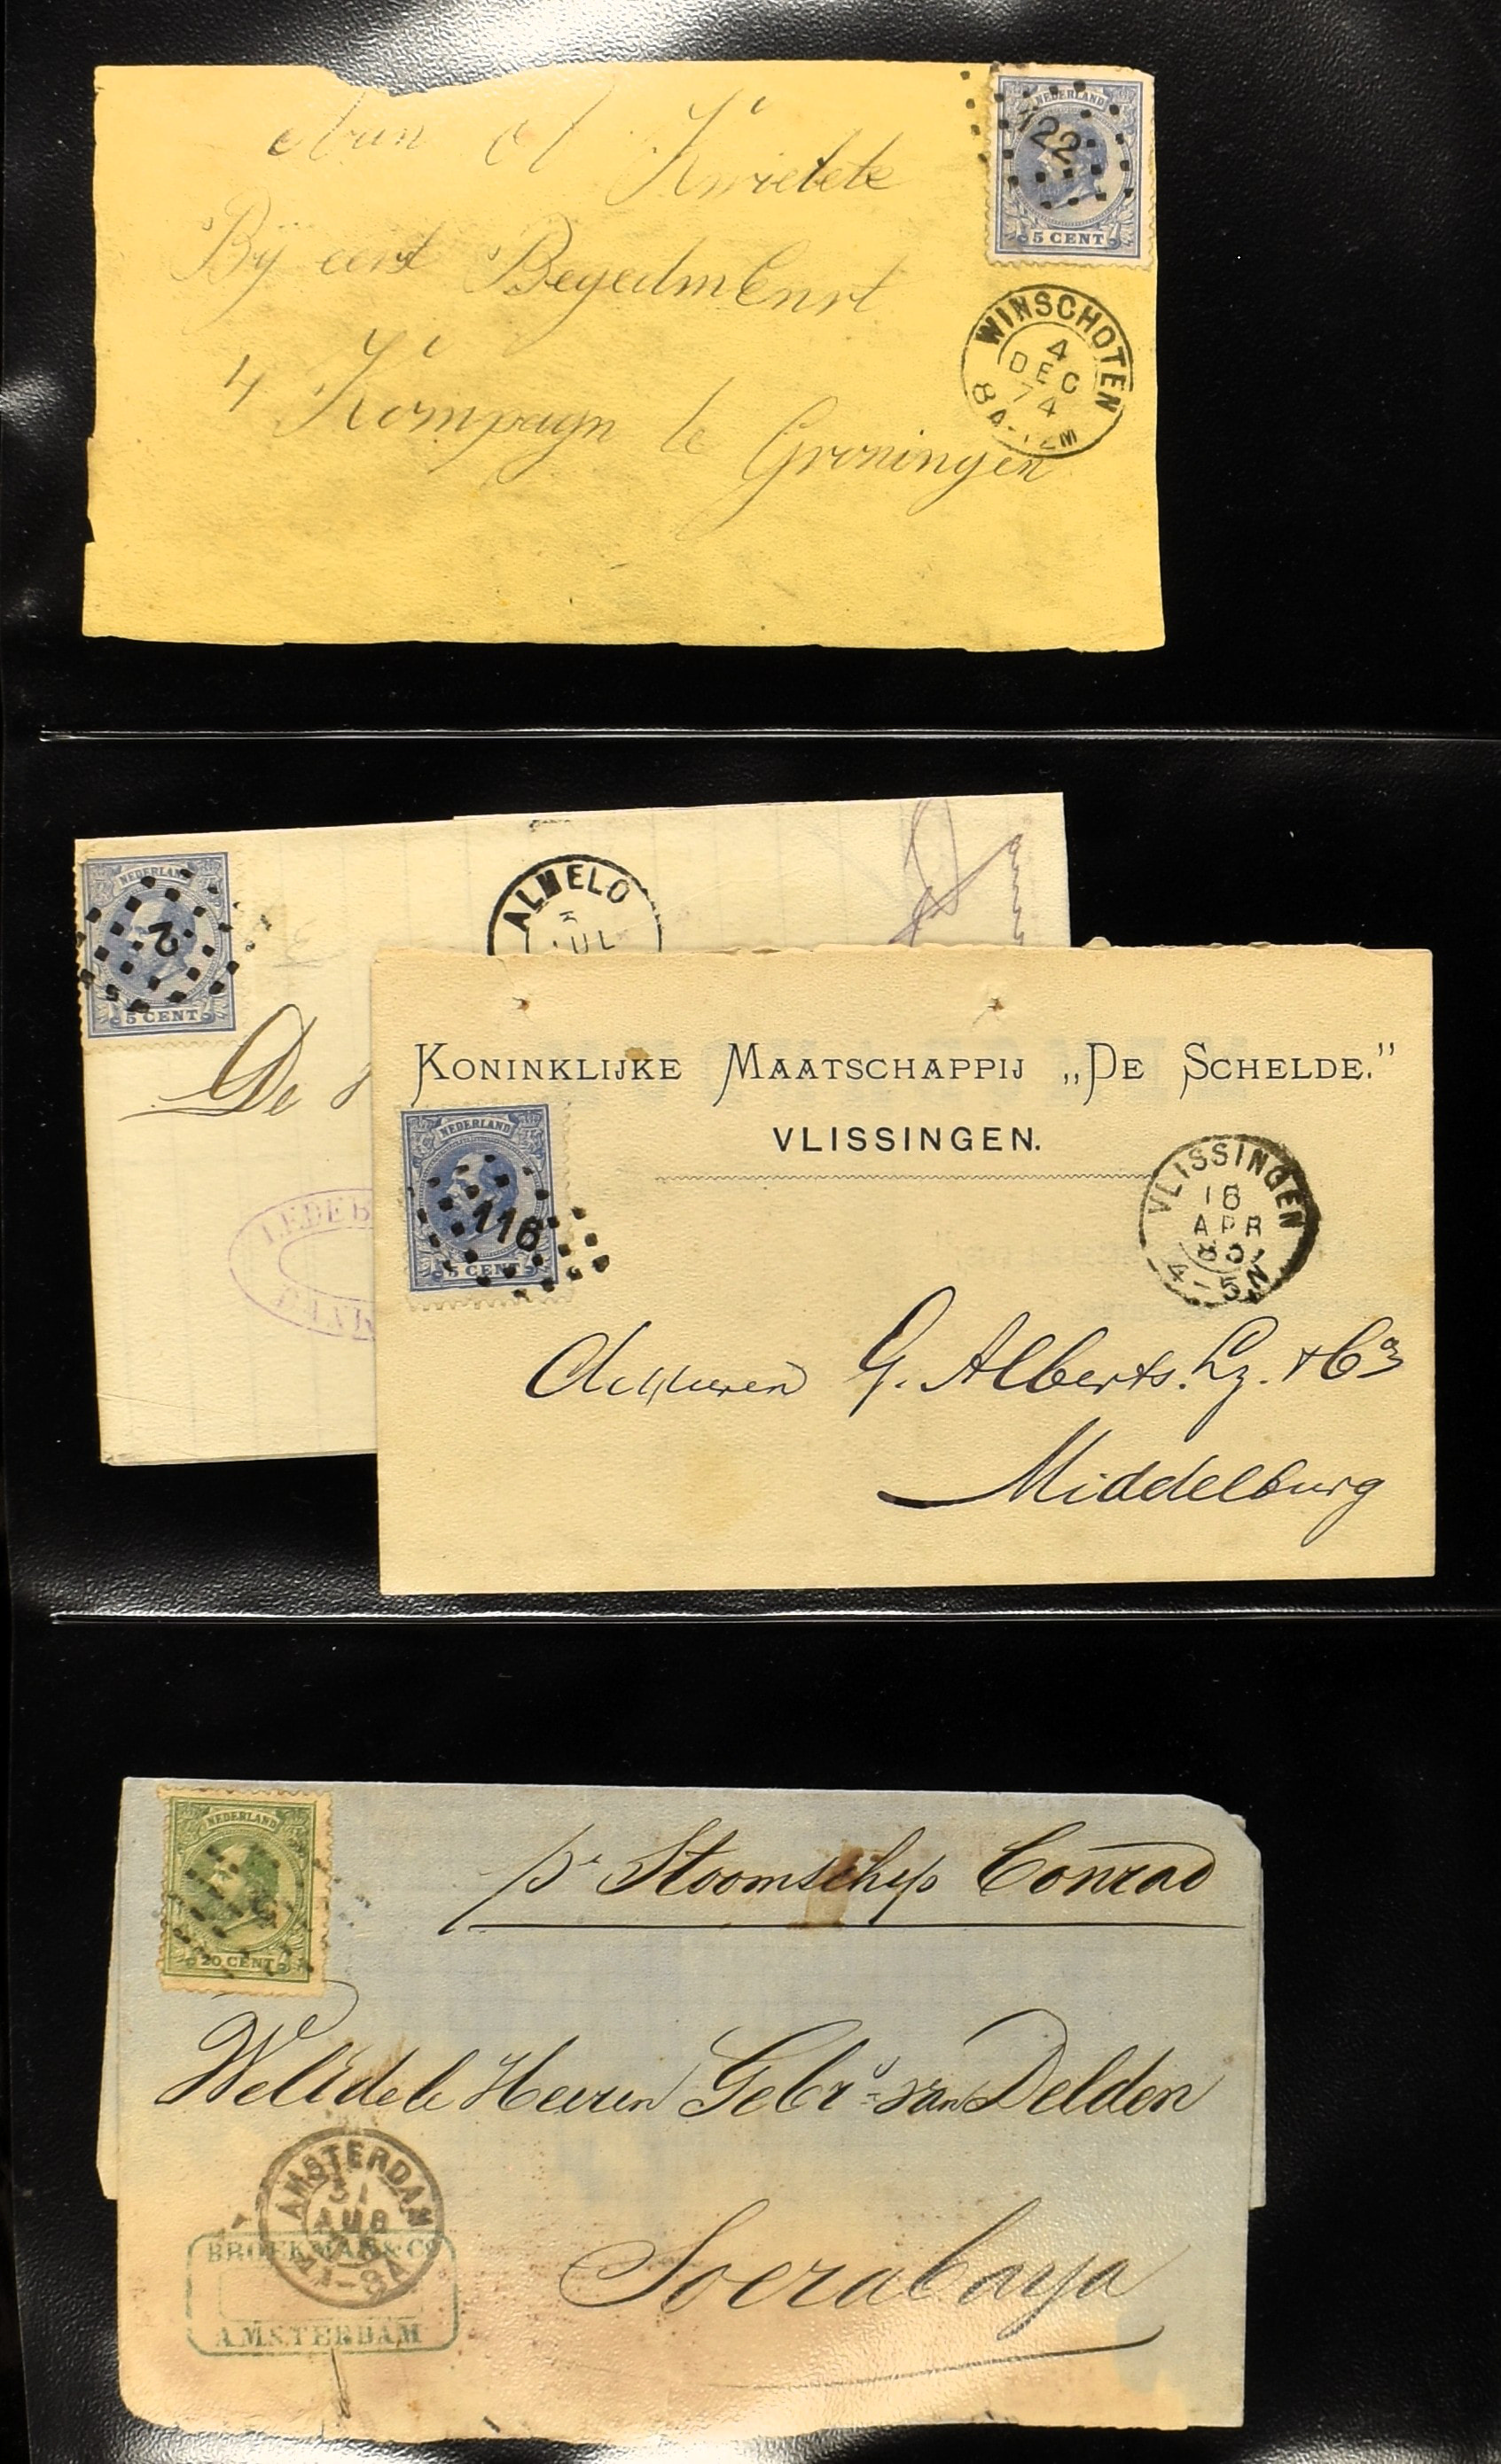 Aan d Kwielete
Bij eerst Begedmbenst
4 Kompagn te Groningen
NEDERLAND
122
5 CENT
WINSCHOTEN
4
DEC
74
8A-12M
NEDERLAND
2
5 CENT
ALMELO
JUL
De
KONINKLIJKE MAATSCHAPPIJ „DE SCHELDE.”
VLISSINGEN.
NEDERLAND
116
5 CENT
VLISSINGEN
18
APR
80
4-5N
G. Alberts. Lz. & Co
Middelburg
NEDERLAND
20 CENT
pr Stoomschip Conrad
WelEdele Heeren Gebrs. van Delden
Soerabaya
AMSTERDAM
31
AUG
BROEKMAN & Co
AMSTERDAM